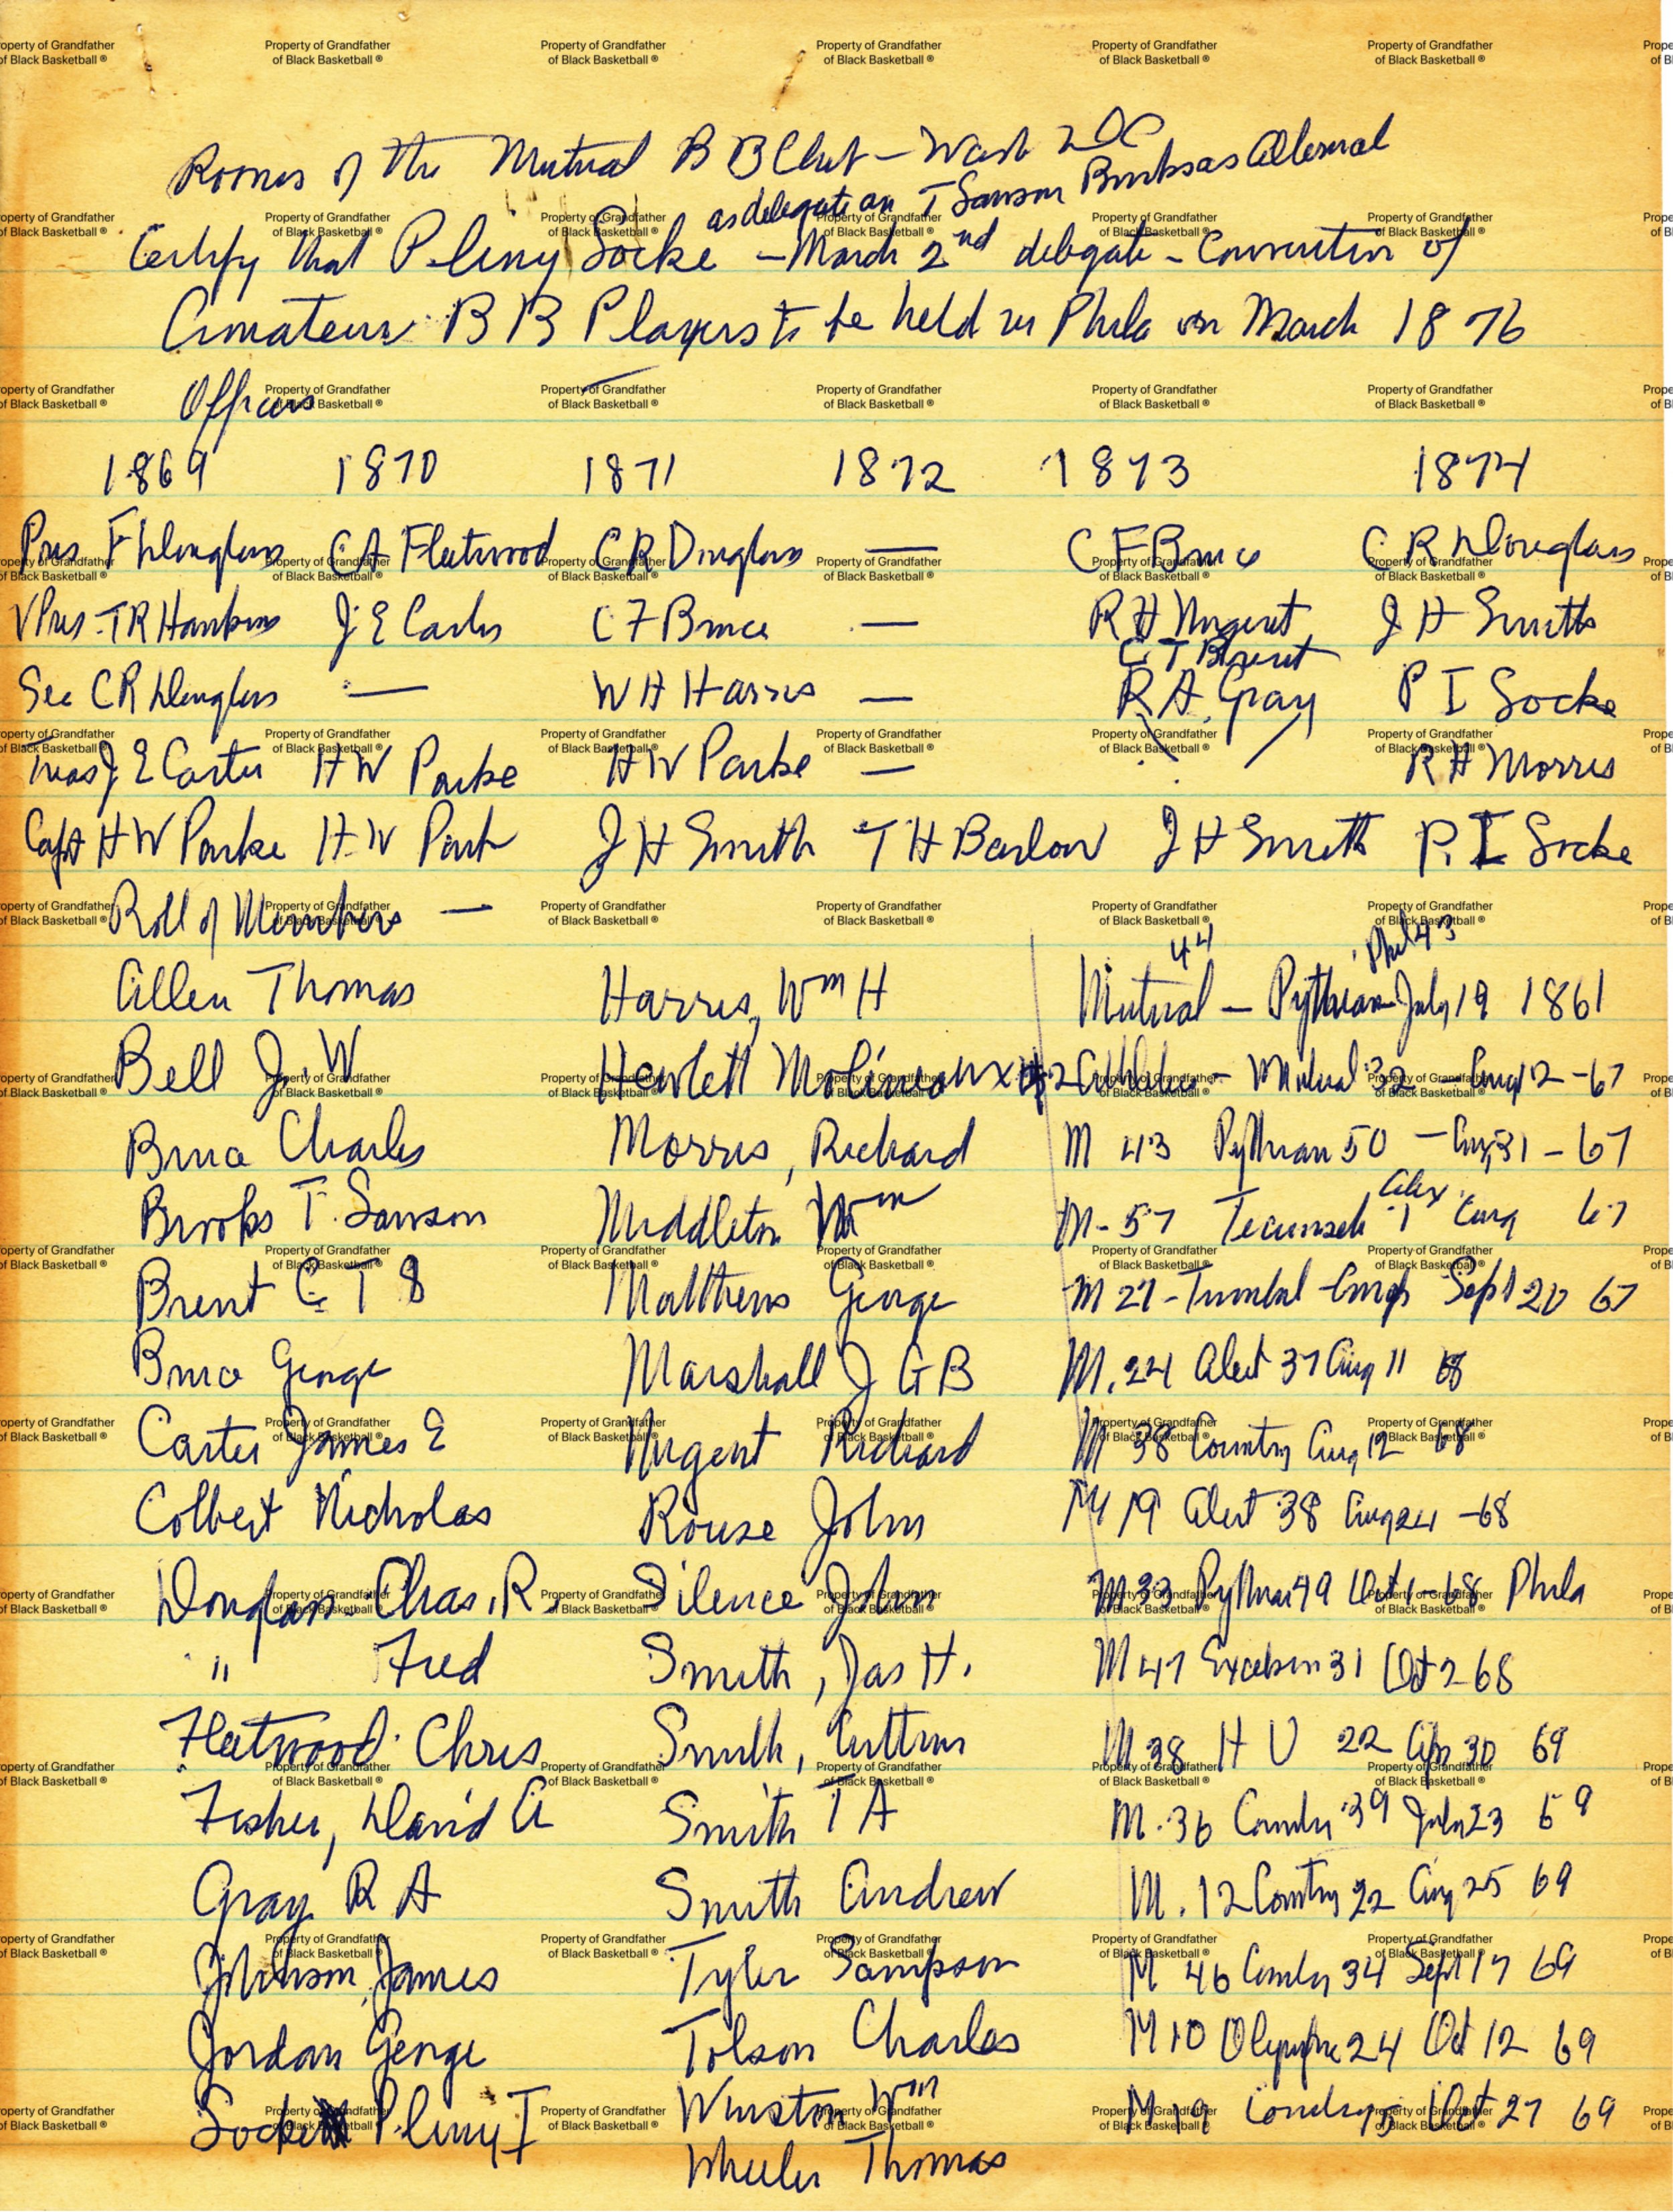 Rooms of the Mutual B B Club - Wash DC
as delegate an T Sanson Brooks as
Certify that Pliny Locke - March 2nd delegate - Convention of
Amateur B B Players to be held in Phila on March 1876
Officers
1869 1870 1871 1872 1873 1874
Pres F Douglass C A Fleetwood C R Douglass — C F Bruce C R Douglass
V Pres - T R Hawkins J E Carter C F Bruce — R H Nugent J H Smith
C T Brent
Sec C R Douglass — W H Harris — R A Gray P I Locke
Treas J E Carter H W Parke H W Parke — R H Morris
Capt H W Parke H W Park J H Smith T H Barlow J H Smith P. I Locke
Roll of Members —
44 Phil 43
Allen Thomas Harris, Wm H Mutual - Pythian July 19 1861
Bell J. W Hewlett Molineaux Mutual 32 - Aug 12 - 67
Bruce Charles Morris, Richard M 43 Pythian 50 - Aug 31 - 67
Alex
Brooks T. Sanson Middleton Wm M - 57 Tecumseh 7 Aug 67
Brent C T 8 Matthews George M 27 - Sept 20 67
Bruce George Marshall J G B M. 24 Alert 37 Aug 11 68
Carter James E Nugent Richard M 38 Country Aug 12 68
Colbert Nicholas Rouse John M 19 Alert 38 Aug 24 - 68
Douglass Chas. R. Silence John M 33 Pythian 49 Oct 1 - 68 Phila
" Fred Smith, Jas H. M 47 Excelsior 31 Oct 2 68
Fleetwood Chris Smith, M 38 H U 22 Apr 30 69
Fisher, David A Smith T A M. 36 Country 39 July 23 69
Gray R A Smith Andrew M. 12 Country 22 Aug 25 69
Johnson, James Tyler Sampson M 46 Country 34 Sept 17 69
Jordan George Tolson Charles M 10 Olympic 24 Oct 12 69
Locke Pliny I Winston Wm M 19 Oct 27 69
Wheeler Thomas
Property of Grandfather
of Black Basketball ®